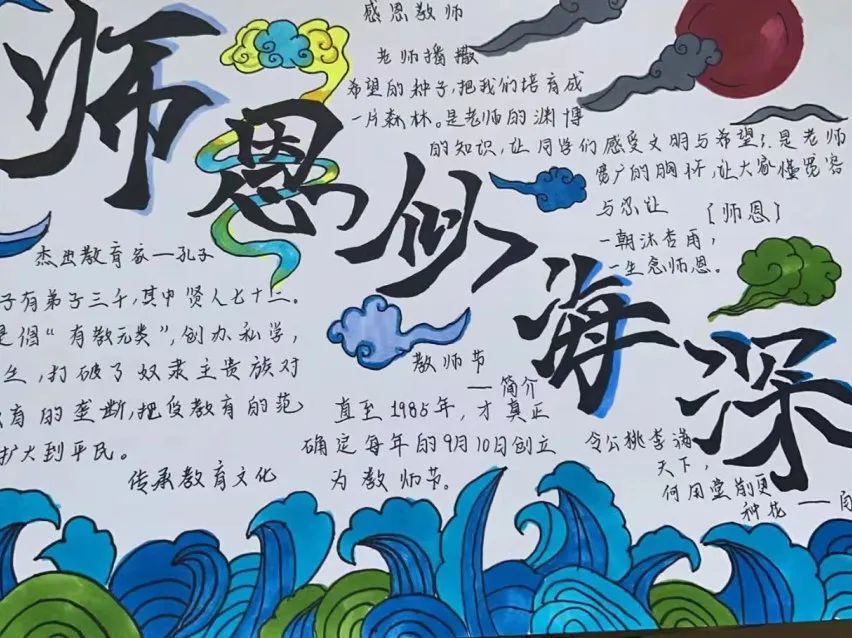 师恩似海深
感恩教师
老师播撒
希望的种子,把我们培育成
一片森林。是老师的渊博
的知识,让同学们感受文明与希望!是老师
宽广的胸怀,让大家懂宽容
与忍让
〔师恩〕
一朝沐杏雨,
一生念师恩。
杰出教育家—孔子
子有弟子三千,其中贤人七十二。
是倡“有教无类”,创办私学,
生,打破了奴隶主贵族对
教育的垄断,把受教育的范
扩大到平民。
传承教育文化
教师节
—简介
直至1985年,才真正
确定每年的9月10日创立
为教师节。
令公桃李满
天下,
何用堂前更
种花——